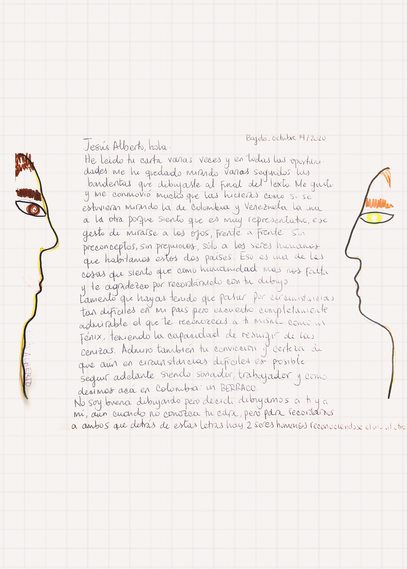 Bogotá, octubre 14/2020
Jesús Alberto, hola.
He leído tu carta varias veces y en todas las oportuni-
dades me he quedado mirando varios segundos las
banderitas que dibujaste al final del texto. Me gustó
y me conmovió mucho que las hicieras como si se
estuvieran mirando la de Colombia y Venezuela la una
a la otra porque siento que es muy representativo, ese
gesto de mirarse a los ojos, frente a frente sin
preconceptos, sin prejuicios, sólo a los seres humanos
que habitamos estos dos países. Eso es una de las
cosas que siento que como humanidad mas nos falta
y te agradezco por recordármelo con tu dibujo
Lamento que hayas tenido que pasar por circunstancias
tan difíciles en mi país pero encuentro completamente
admirable el que te reconozcas a ti mismo como un
Fénix, teniendo la capacidad de resurgir de las
cenizas. Admiro también tu convicción y certeza de
que aún en circunstancias difíciles es posible
seguir adelante siendo soñador, trabajador y como
decimos acá en Colombia: un BERRACO
No soy buena dibujando pero decidí dibujarnos a ti y a
mí, aún cuando no conozca tu cara, pero para recordarnos
a ambos que detrás de estas letras hay 2 seres humanos reconociéndose el uno al otro